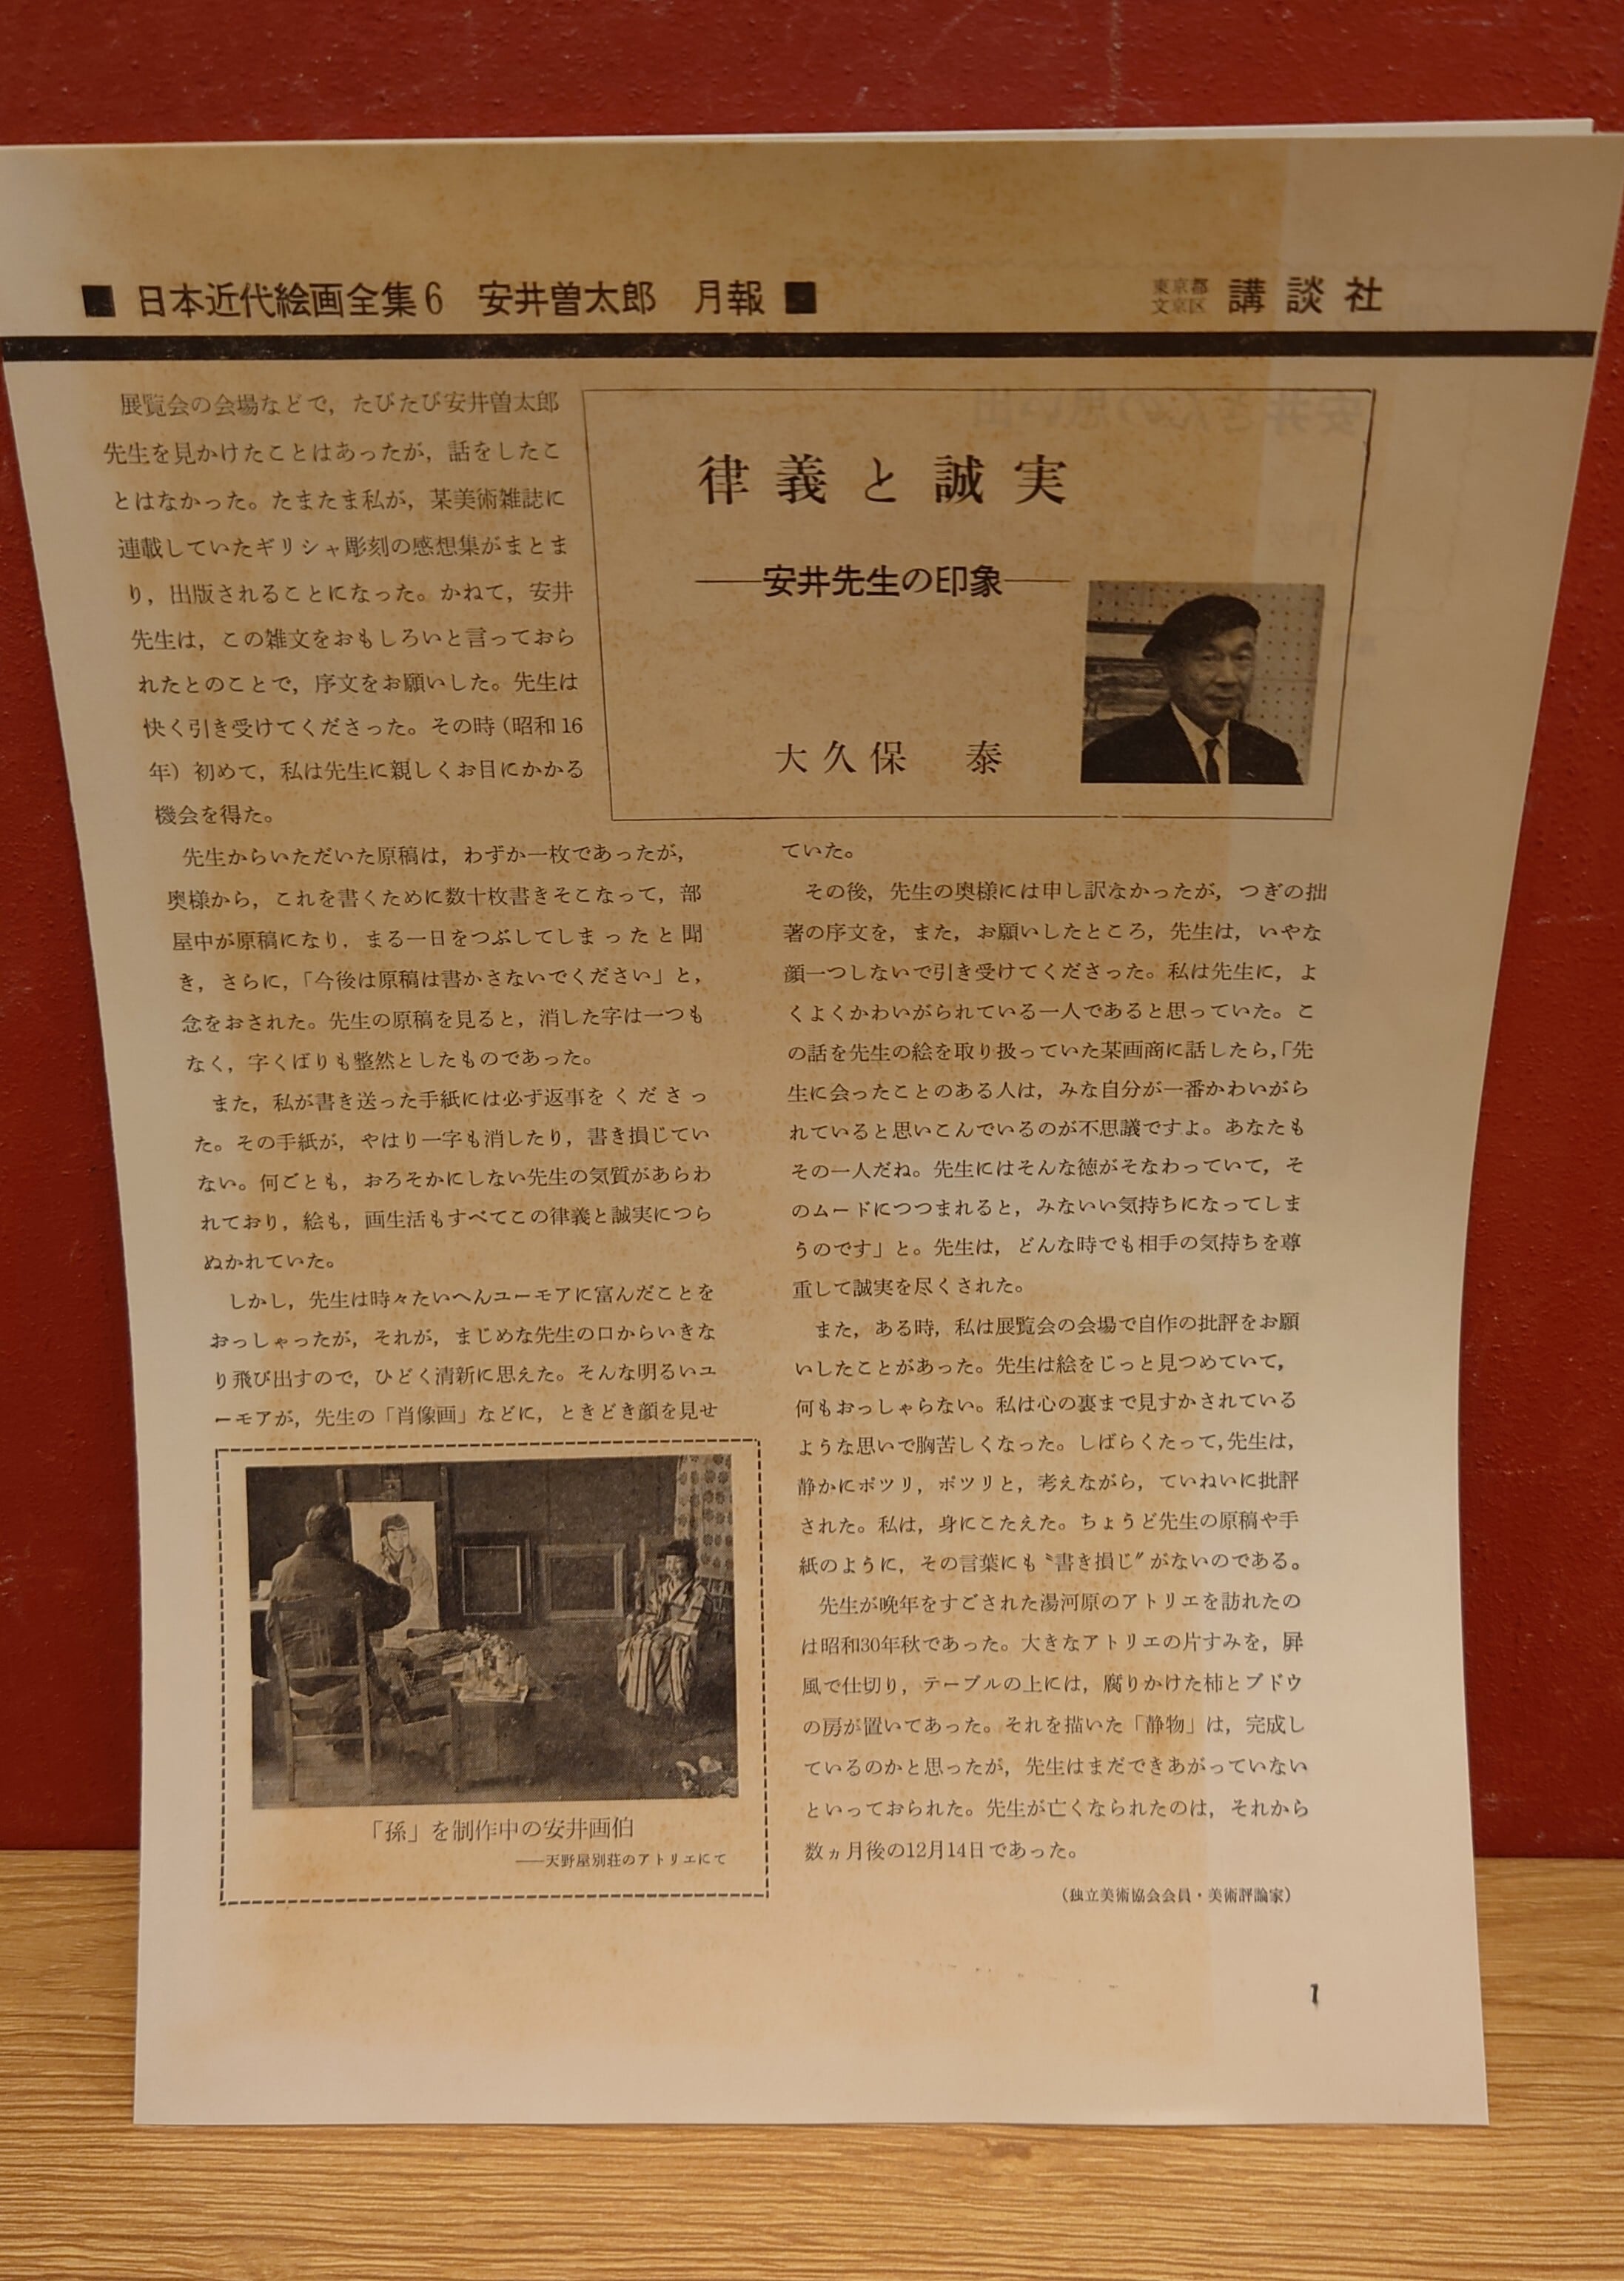 ■ 日本近代絵画全集6 安井曽太郎 月報 ■
東京都
文京区
講談社
律義と誠実
――安井先生の印象――
大久保 泰
展覧会の会場などで，たびたび安井曽太郎
先生を見かけたことはあったが，話をしたこ
とはなかった。たまたま私が，某美術雑誌に
連載していたギリシャ彫刻の感想集がまとま
り，出版されることになった。かねて，安井
先生は，この雑文をおもしろいと言っておら
れたとのことで，序文をお願いした。先生は
快く引き受けてくださった。その時（昭和16
年）初めて，私は先生に親しくお目にかかる
機会を得た。
先生からいただいた原稿は，わずか一枚であったが，
奥様から，これを書くために数十枚書きそこなって，部
屋中が原稿になり，まる一日をつぶしてしまったと聞
き，さらに，「今後は原稿は書かさないでください」と，
念をおされた。先生の原稿を見ると，消した字は一つも
なく，字くばりも整然としたものであった。
また，私が書き送った手紙には必ず返事をくださっ
た。その手紙が，やはり一字も消したり，書き損じてい
ない。何ごとも，おろそかにしない先生の気質があらわ
れており，絵も，画生活もすべてこの律義と誠実につら
ぬかれていた。
しかし，先生は時々たいへんユーモアに富んだことを
おっしゃったが，それが，まじめな先生の口からいきな
り飛び出すので，ひどく清新に思えた。そんな明るいユ
ーモアが，先生の「肖像画」などに，ときどき顔を見せ
「孫」を制作中の安井画伯
――天野屋別荘のアトリエにて
ていた。
その後，先生の奥様には申し訳なかったが，つぎの拙
著の序文を，また，お願いしたところ，先生は，いやな
顔一つしないで引き受けてくださった。私は先生に，よ
くよくかわいがられている一人であると思っていた。こ
の話を先生の絵を取り扱っていた某画商に話したら，「先
生に会ったことのある人は，みな自分が一番かわいがら
れていると思いこんでいるのが不思議ですよ。あなたも
その一人だね。先生にはそんな徳がそなわっていて，そ
のムードにつつまれると，みないい気持ちになってしま
うのです」と。先生は，どんな時でも相手の気持ちを尊
重して誠実を尽くされた。
また，ある時，私は展覧会の会場で自作の批評をお願
いしたことがあった。先生は絵をじっと見つめていて，
何もおっしゃらない。私は心の裏まで見すかされている
ような思いで胸苦しくなった。しばらくたって，先生は，
静かにボツリ，ボツリと，考えながら，ていねいに批評
された。私は，身にこたえた。ちょうど先生の原稿や手
紙のように，その言葉にも〝書き損じ〟がないのである。
先生が晩年をすごされた湯河原のアトリエを訪れたの
は昭和30年秋であった。大きなアトリエの片すみを，屛
風で仕切り，テーブルの上には，腐りかけた柿とブドウ
の房が置いてあった。それを描いた「静物」は，完成し
ているのかと思ったが，先生はまだできあがっていない
といっておられた。先生が亡くなられたのは，それから
数ヵ月後の12月14日であった。
（独立美術協会会員・美術評論家）
1